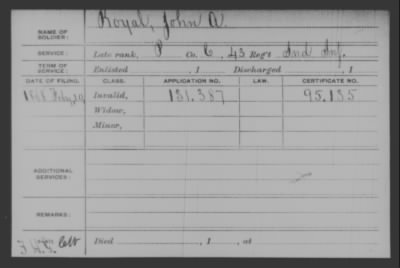 NAME OF SOLDIER: Royal, John A.
SERVICE: Late rank, P Co. C, 43 Reg't Ind Inf.
TERM OF SERVICE: Enlisted , 1 Discharged , 1
DATE OF FILING. CLASS. APPLICATION NO. LAW. CERTIFICATE NO.
1868 Feby 29 Invalid, 131.387 95.135
Widow,
Minor,
ADDITIONAL SERVICES:
REMARKS:
Died , 1 , at